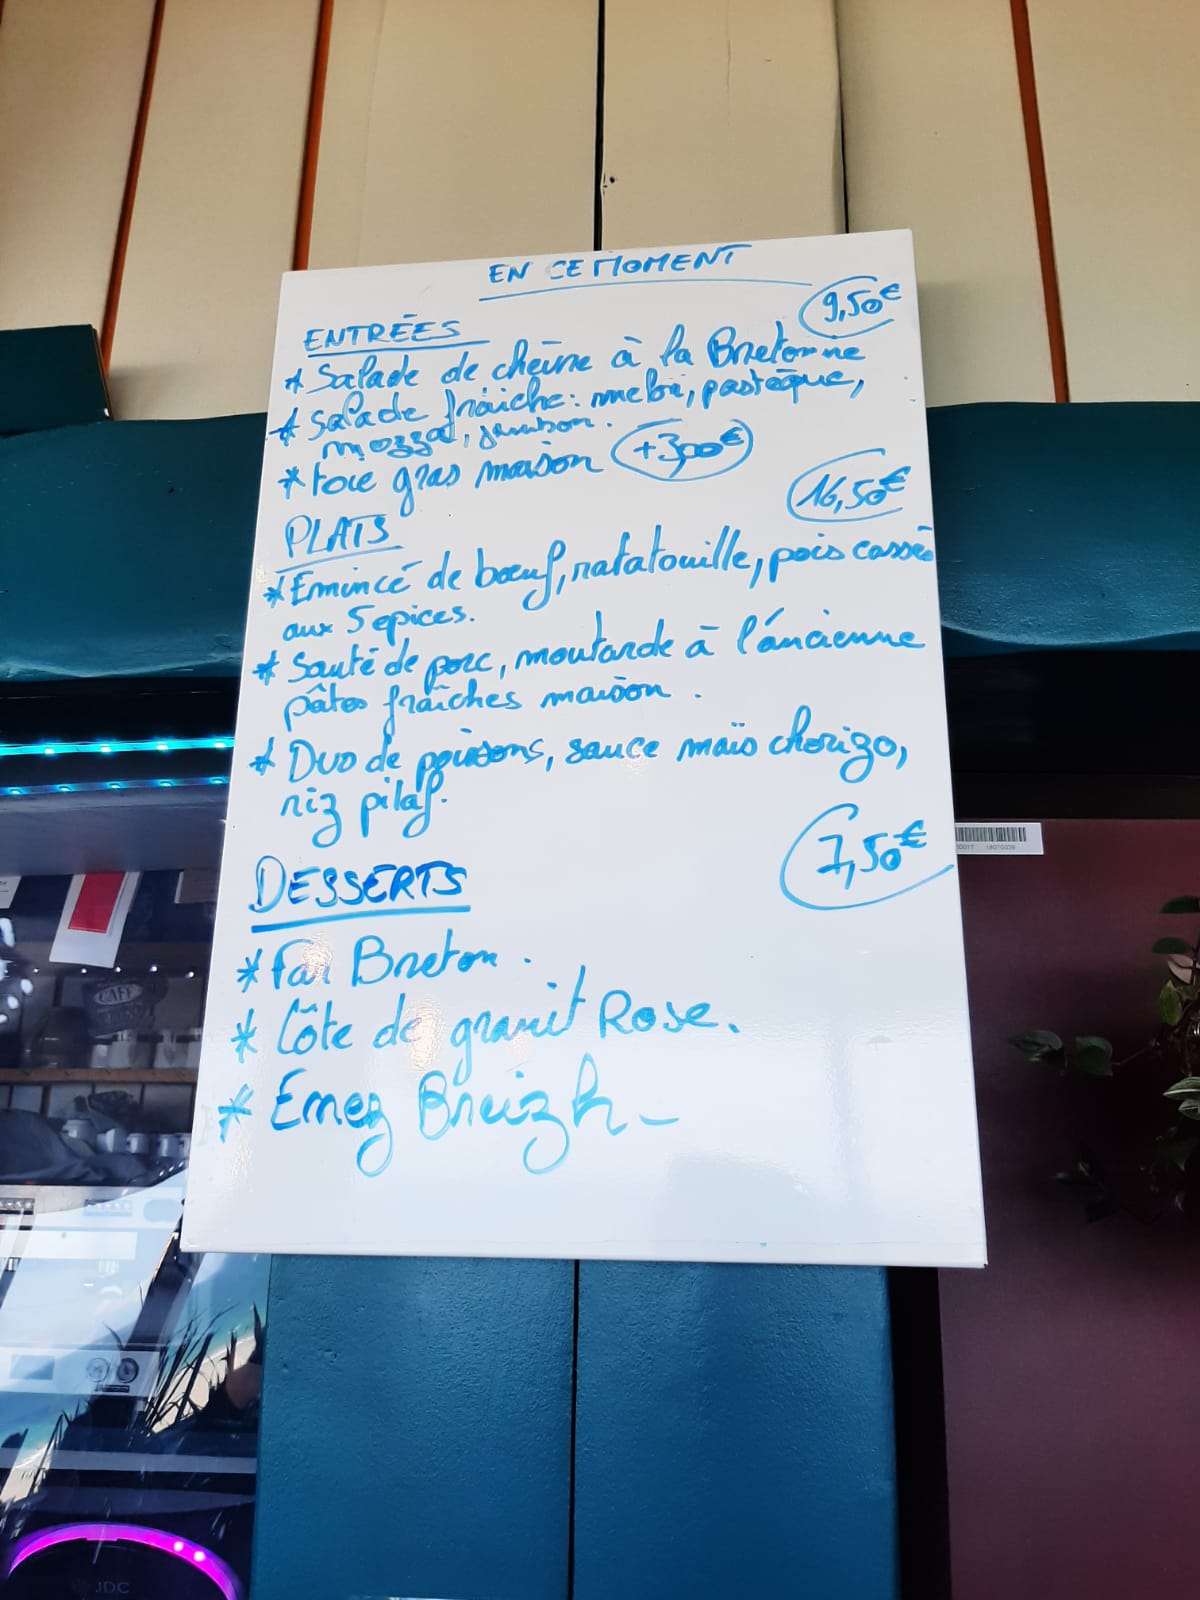 EN CE MOMENT
9,50€
ENTRÉES
* Salade de chèvre à la Bretonne
* Salade fraîche: melon, pastèque,
mozza, jambon.
* Foie gras maison +3,00€
16,50€
PLATS
* Emincé de bœuf, ratatouille, pois cassés
aux 5 épices.
* Sauté de porc, moutarde à l'ancienne
pâtes fraîches maison.
* Duo de poissons, sauce maïs chorizo,
riz pilaf.
7,50€
DESSERTS
* Far Breton.
* Côte de granit Rose.
* Enez Breizh_
CAFÉ
JDC